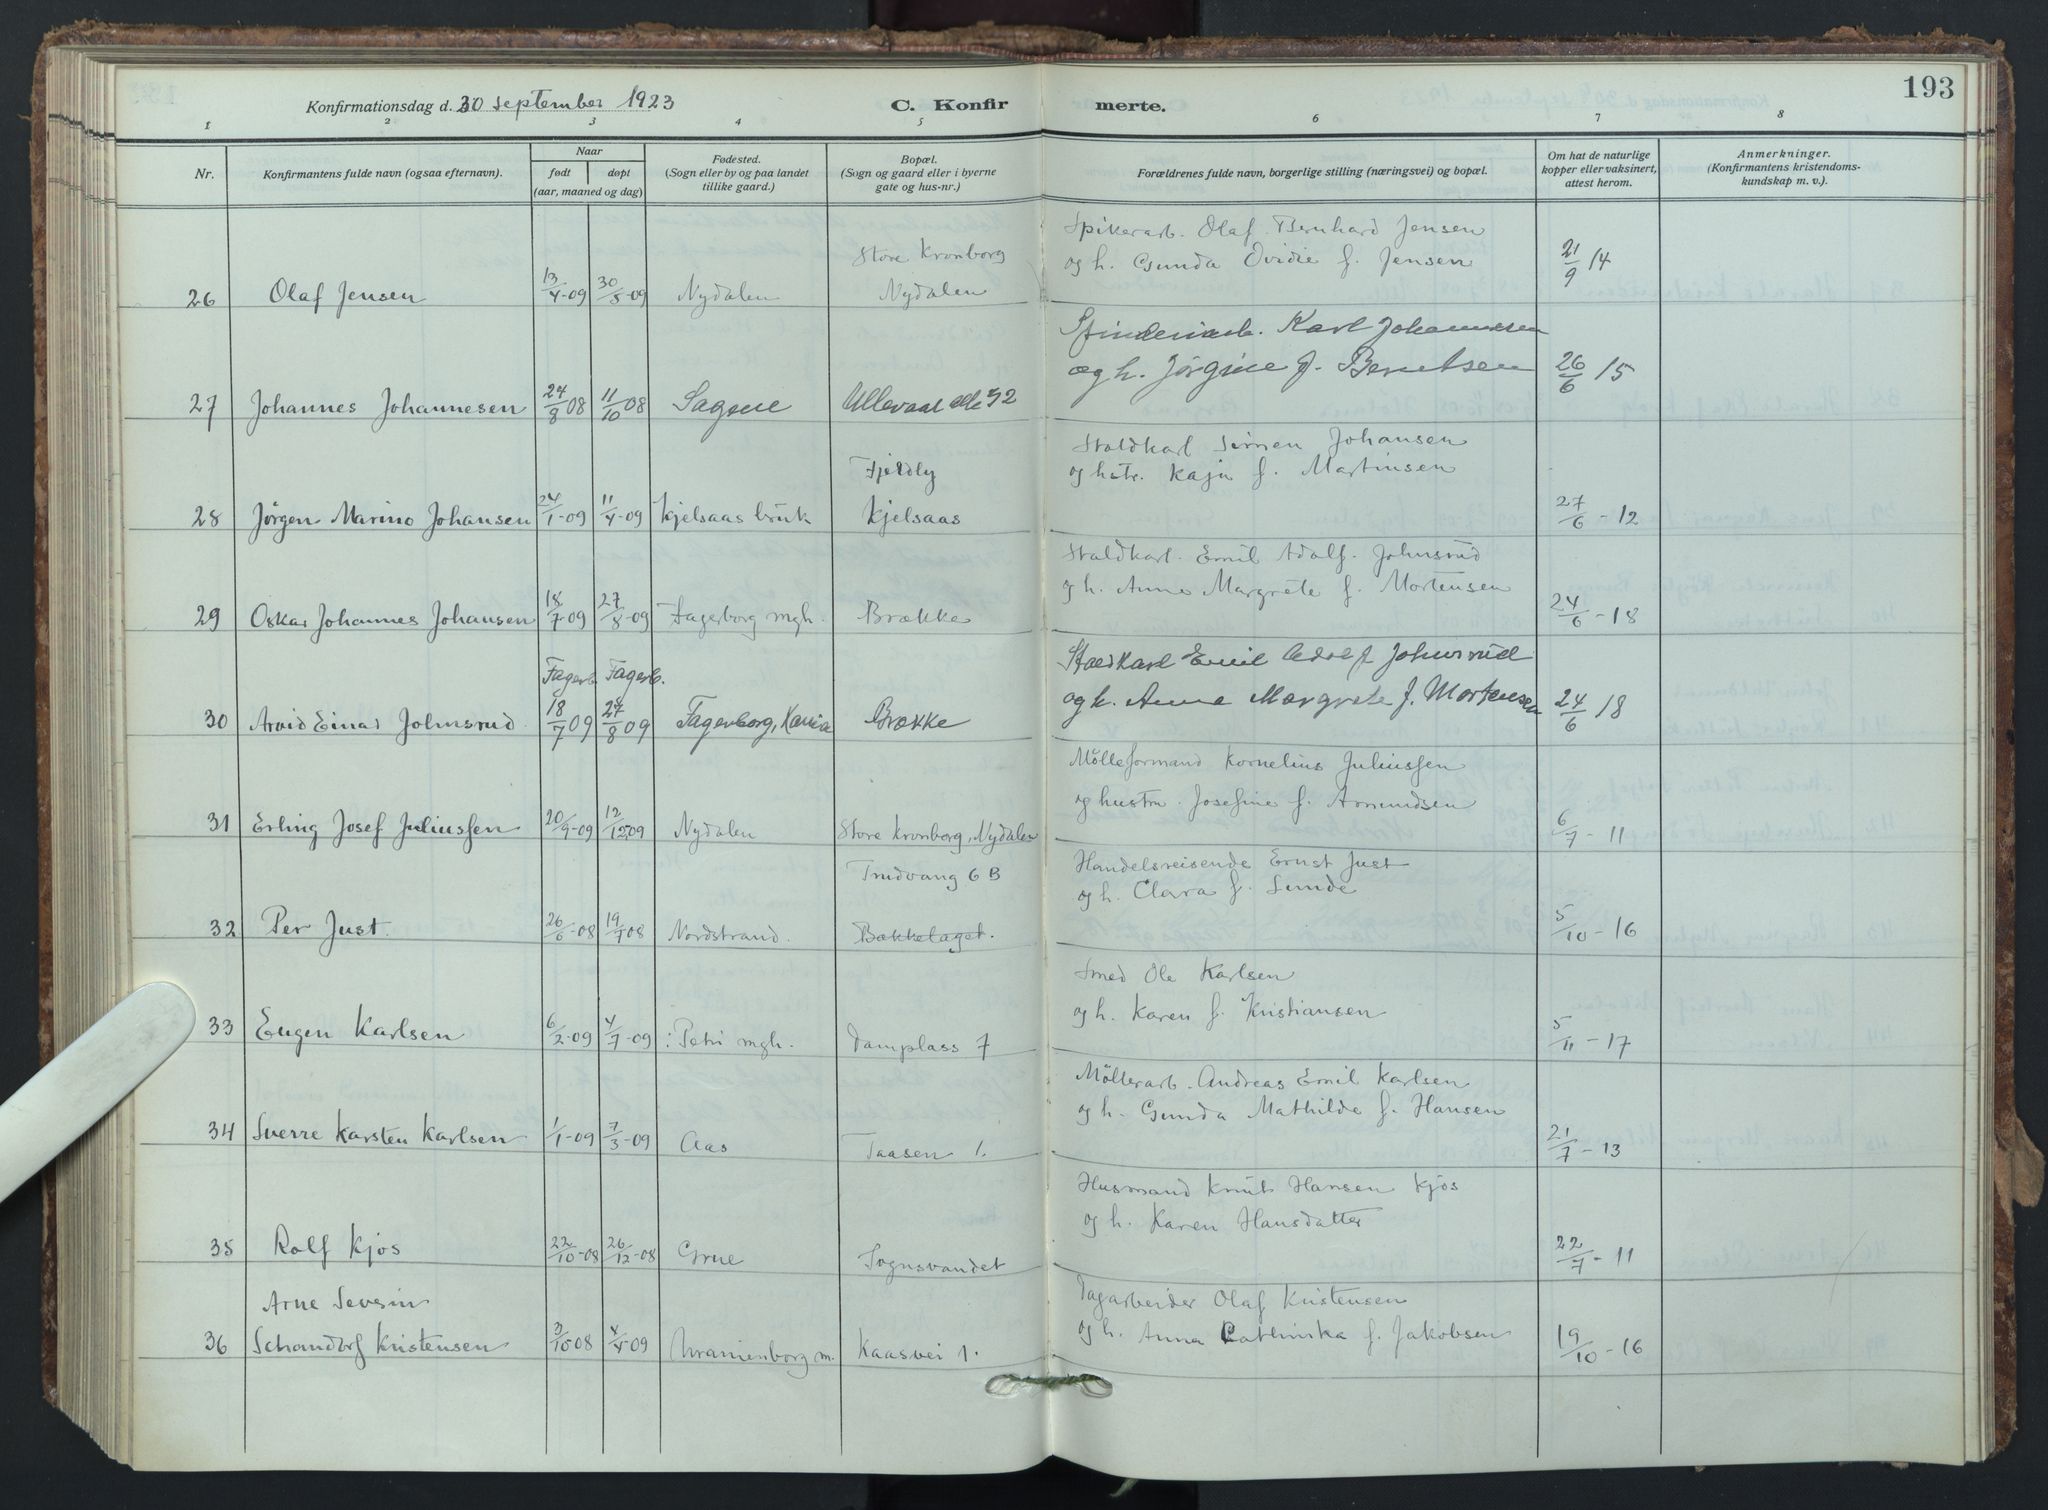 193
Konfirmationsdag d. 30 september 1923 C. Konfirmerte.
1 2 3 4 5 6 7 8
Nr. Konfirmantens fulde navn (ogsaa efternavn). Naar født døpt (aar, maaned og dag) Fødested. (Sogn eller by og paa landet tillike gaard.) Bopæl. (Sogn og gaard eller i byerne gate og hus-nr.) Forældrenes fulde navn, borgerlige stilling (næringsvei) og bopæl. Om hat de naturlige kopper eller vaksinert, attest herom. Anmerkninger. (Konfirmantens kristendomskundskap m. v.).
Spikerarb. Olaf Bernhard Jensen
Store Kronborg og h. Gunda Ovidie f. Jensen 21/9 14
26 Olaf Jensen 13/4-09 30/5-09 Nydalen Nydalen
Spinderiarb. Karl Johannesen
og h. Jørgine f. Berntsen 26/6 15
27 Johannes Johannesen 24/8 08 11/10 08 Sagene Ullevaal alle 52
Staldkarl Simen Johansen
Fjeldly og hstr. Kaja f. Martinsen
28 Jørgen Marino Johansen 24/1-09 11/4-09 Kjelsaas bruk Kjelsaas 27/6-12
Staldkarl. Emil Adolf. Johnsrud
og h. Anna Margrete f. Mortensen
29 Oskar Johannes Johansen 18/7-09 27/8-09 Fagerborg mgh. Brække 24/6-18
Fagerb. Fagerb. Staldkarl Emil Adolf Johnsrud
og h. Anna Margrete f. Mortensen
30 Arvid Einar Johnsrud 18/7 09 27/8 09 Fagerborg, Brække 24/6 18
Mølleformand Kornelius Juliussen
og hustru. Josefine f. Amundsen
31 Erling Josef Juliussen 20/9-09 12/12 09 Nydalen Store Kronborg, Nydalen 6/7-11
Trudvang 6 B Handelsreisende Ernst Just
og h. Clara f. Sunde
32 Per Just. 26/6-08 19/7 08 Nordstrand. Bækkelaget. 5/10-16
Smed Ole Karlsen
og h. Karen f. Kristiansen
33 Eugen Karlsen 6/2-09 4/7-09 Petri mgh. Damplass 7 5/11-17
Møllerarb. Andreas Emil Karlsen
og h. Gunda Mathilde f. Hansen
34 Sverre Karsten Karlsen 1/1-09 7/3-09 Aas Taasen 1. 21/7-13
Husmand Knut Hansen Kjos
og h. Karen Hansdatter
35 Rolf Kjos 22/10-08 26/12-08 Grue Sognsvandet 22/7-11
Arne Severin Dagarbeider Olaf Kristensen
og h. Anna Cathinka f. Jakobsen
36 Schandorf Kristensen 3/10-08 4/4-09 Uranienborg m. Kaasvei 1. 19/10-16